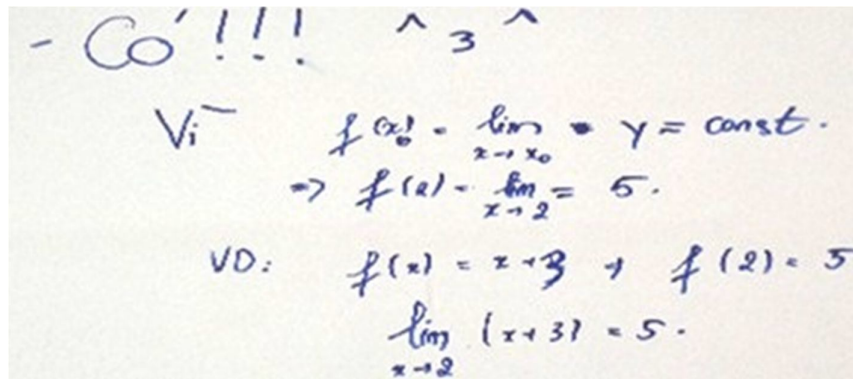 - Có !!! ^ 3 ^
Vì f(x₀) = lim x→x₀ = y = const.
=> f(2) = lim x→2 = 5.
VD: f(x) = x+3 → f(2) = 5
lim x→2 (x+3) = 5.